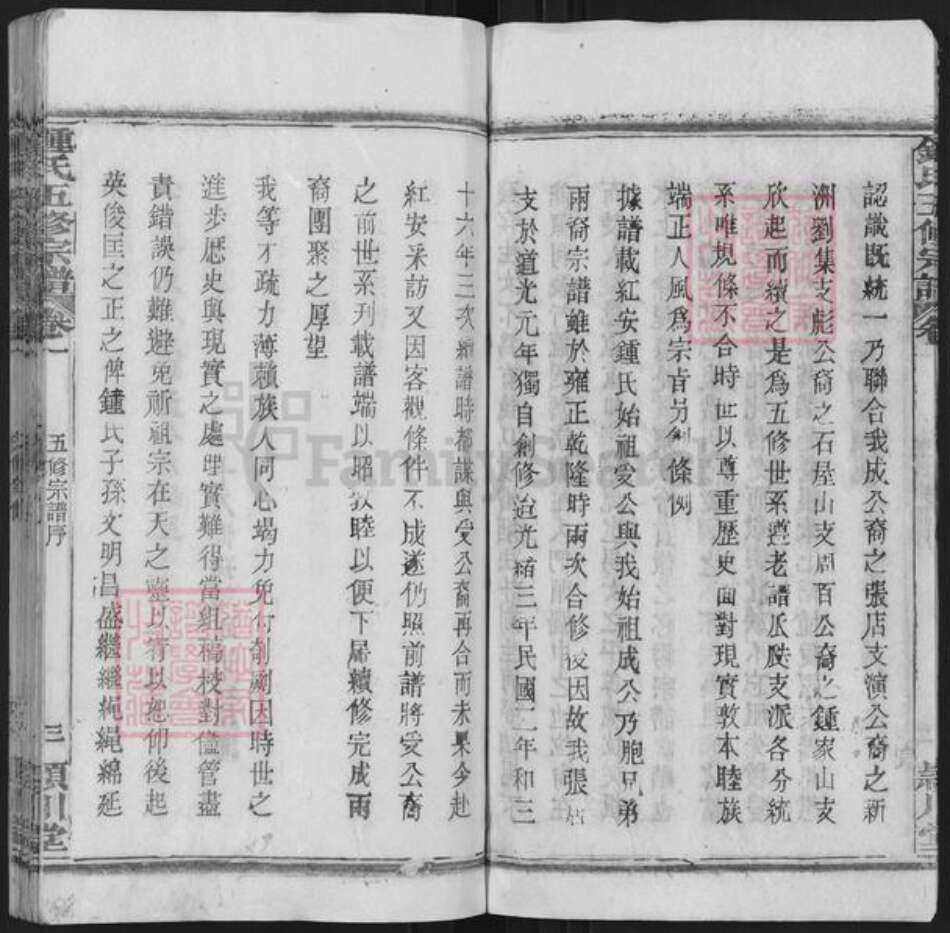 認識既統一乃聯合我成公裔之張店支演公裔之新
洲劉集支彪公裔之石屋山支周百公裔之鍾家山支
欣起而續之是為五修世系遵老譜瓜瓞支派各分統
系唯規條不合時世以尊重歷史面對現實敦本睦族
端正人風為宗旨另創條例
據譜載紅安鍾氏始祖受公與我始祖成公乃胞兄弟
兩裔宗譜雖於雍正乾隆時兩次合修後因故我張店
支於道光元年獨自創修迨光緒三年民國二年和三
十六年三次續譜時都謀與受公裔再合而未果今赴
紅安采訪又因客觀條件不成遂仍照前譜將受公裔
之前世系刊載譜端以昭敦睦以便下屆續修完成兩
裔團聚之厚望
我等才疏力薄賴族人同心竭力免付剞劂因時世之
進步歷史與現實之處理實難得當組稿校對儘管盡
責錯誤仍難避免祈祖宗在天之靈以宥以恕仰後起
英俊匡之正之俾鍾氏子孫文明昌盛繼繼繩繩綿延
鍾氏五修宗譜 卷一
五修宗譜序
三
潁川堂
鍾氏五修宗譜 卷
潁川堂
FamilySearch